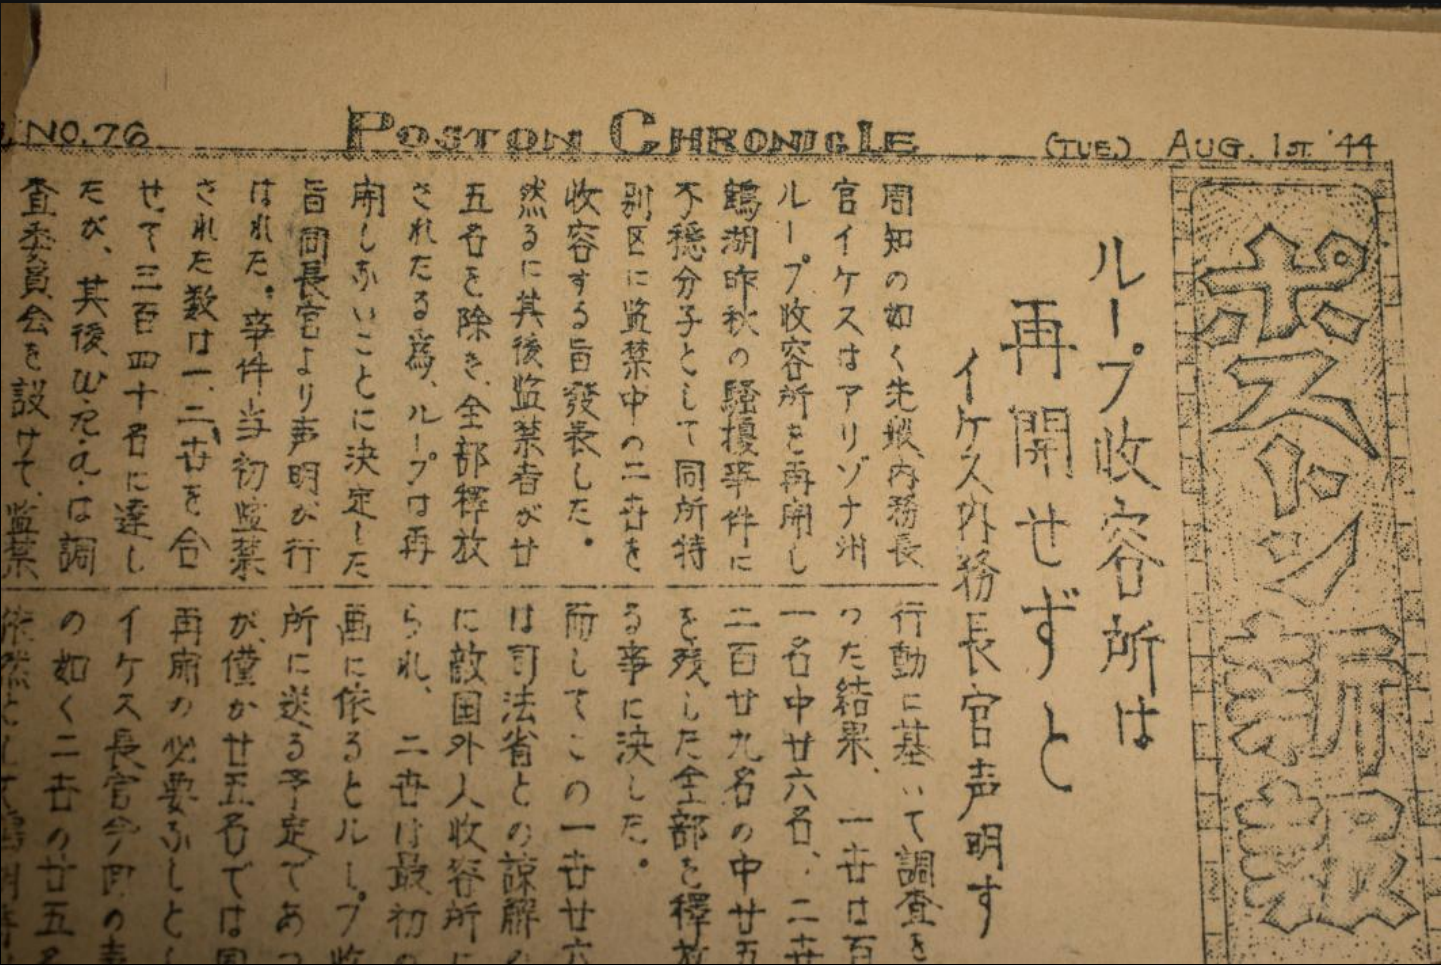 NO.76 POSTON CHRONICLE (TUE.) AUG. 1ST. '44
ポストン新報
ループ收容所は
再開せずと
イケス内務長官声明す
周知の如く先般内務長
官イケスはアリゾナ洲
ループ收容所を再開し
鶴湖昨秋の騒擾事件に
不穏分子として同所特
別区に監禁中の二世を
收容する旨發表した。
然るに其後監禁者が廿
五名を除き、全部釋放
されたる為、ループは再
開しないことに決定した
旨同長官より声明が行
はれた。事件当初監禁
された数は一、二世を合
せて三百四十名に達し
たが、其後W.R.A.は調
査委員会を設けて、監禁
行動に基いて調査を
った結果、一世は百
一名中廿六名、二世
二百廿九名の中廿五
を残した全部を釋放
る事に決した。
而してこの一世廿六
は司法省との諒解
に敵国外人收容所に
られ、二世は最初の
画に依るとループ收
所に送る予定であつ
が、僅か廿五名では
再開の必要なしとし
イケス長官今回の声
の如く二世の廿五名
依然として鶴湖